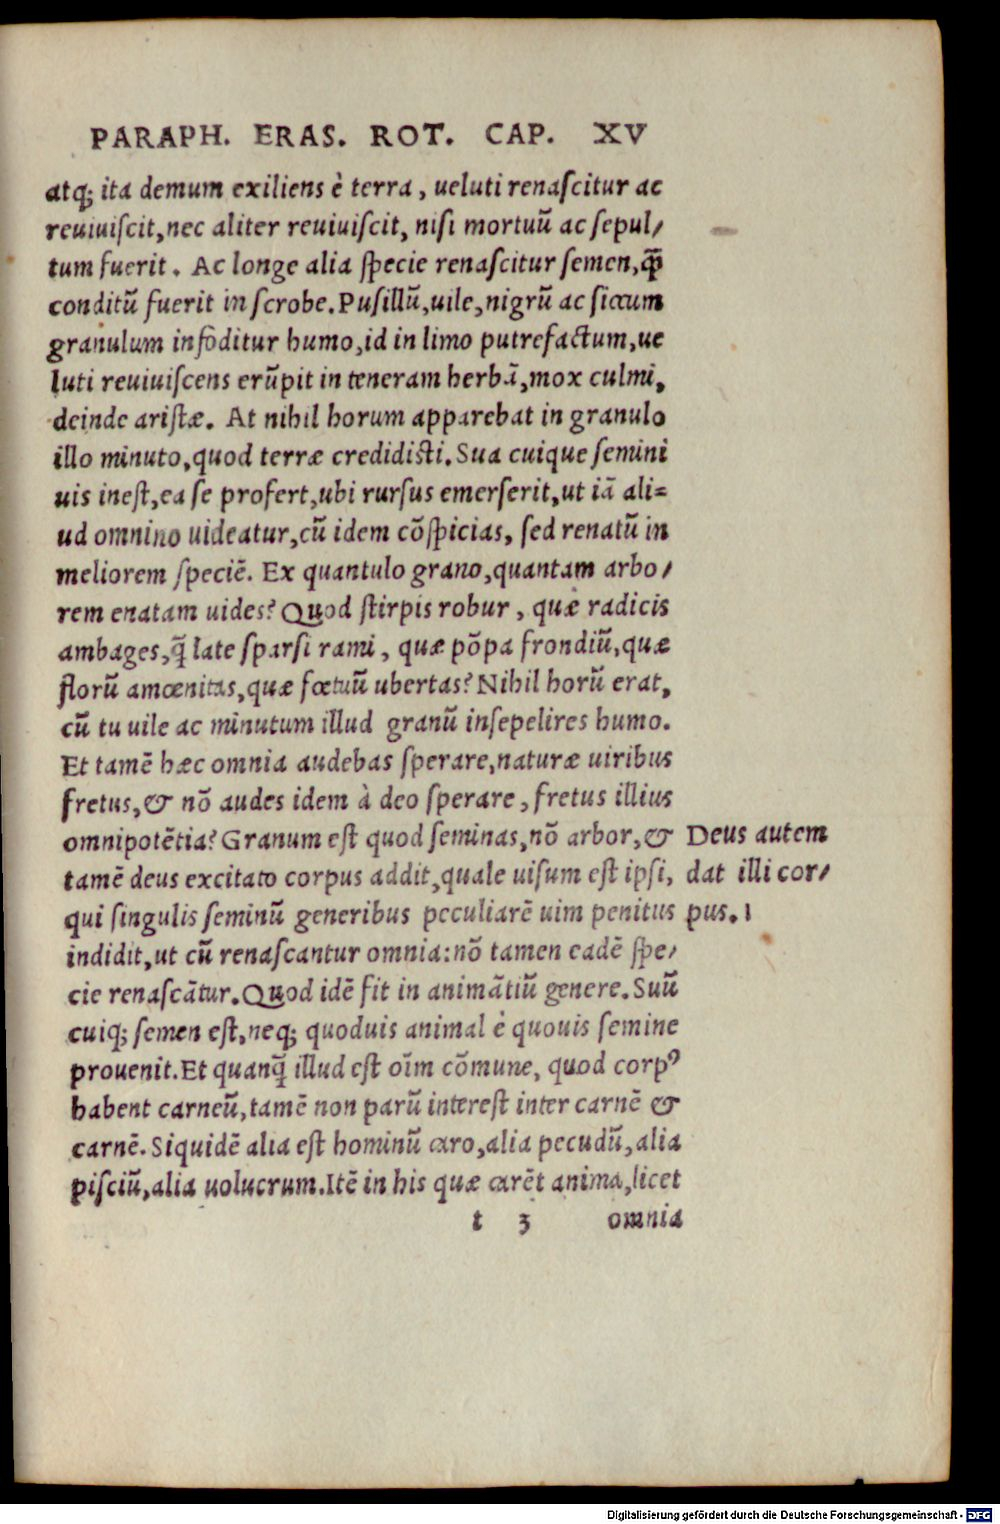 PARAPH. ERAS. ROT. CAP. XV
atq; ita demum exiliens è terra, ueluti renaſcitur ac
reuiuiſcit, nec aliter reuiuiſcit, niſi mortuũ ac ſepul/
tum fuerit. Ac longe alia ſpecie renaſcitur ſemen, ꝙ̃
conditũ fuerit in ſcrobe. Puſillũ, uile, nigrũ ac ſiccum
granulum infõditur humo, id in limo putrefactum, ue
luti reuiuiſcens erũpit in teneram herbã, mox culmi,
deinde ariſtæ. At nihil horum apparebat in granulo
illo minuto, quod terræ credidiſti. Sua cuique ſemini
uis ineſt, ea ſe profert, ubi rurſus emerſerit, ut iã ali=
ud omnino uideatur, cũ idem cõſpicias, ſed renatũ in
meliorem ſpeciẽ. Ex quantulo grano, quantam arbo/
rem enatam uides? Quod ſtirpis robur, quæ radicis
ambages, q̃ late ſparſi rami, quæ põpa frondiũ, quæ
florũ amœnitas, quæ fœtuũ ubertas? Nihil horũ erat,
cũ tu uile ac minutum illud granũ inſepelires humo.
Et tamẽ hæc omnia audebas ſperare, naturæ uiribus
fretus, & nõ audes idem à deo ſperare, fretus illius
omnipotẽtia? Granum eſt quod ſeminas, nõ arbor, &
tamẽ deus excitato corpus addit, quale uiſum eſt ipſi,
qui ſingulis ſeminũ generibus peculiarẽ uim penitus
indidit, ut cũ renaſcantur omnia: nõ tamen eadẽ ſpe/
cie renaſcãtur. Quod idẽ fit in animãtiũ genere. Suũ
cuiq; ſemen eſt, neq; quoduis animal è quouis ſemine
prouenit. Et quanq̃ illud eſt oĩm cõmune, quod corpꝰ
habent carneũ, tamẽ non parũ intereſt inter carnẽ &
carnẽ. Siquidẽ alia eſt hominũ caro, alia pecudũ, alia
piſciũ, alia uolucrum. Itẽ in his quæ carẽt anima, licet
t 3 omnia
Deus autem
dat illi cor/
pus. 1
Digitalisierung gefördert durch die Deutsche Forschungsgemeinschaft - DFG